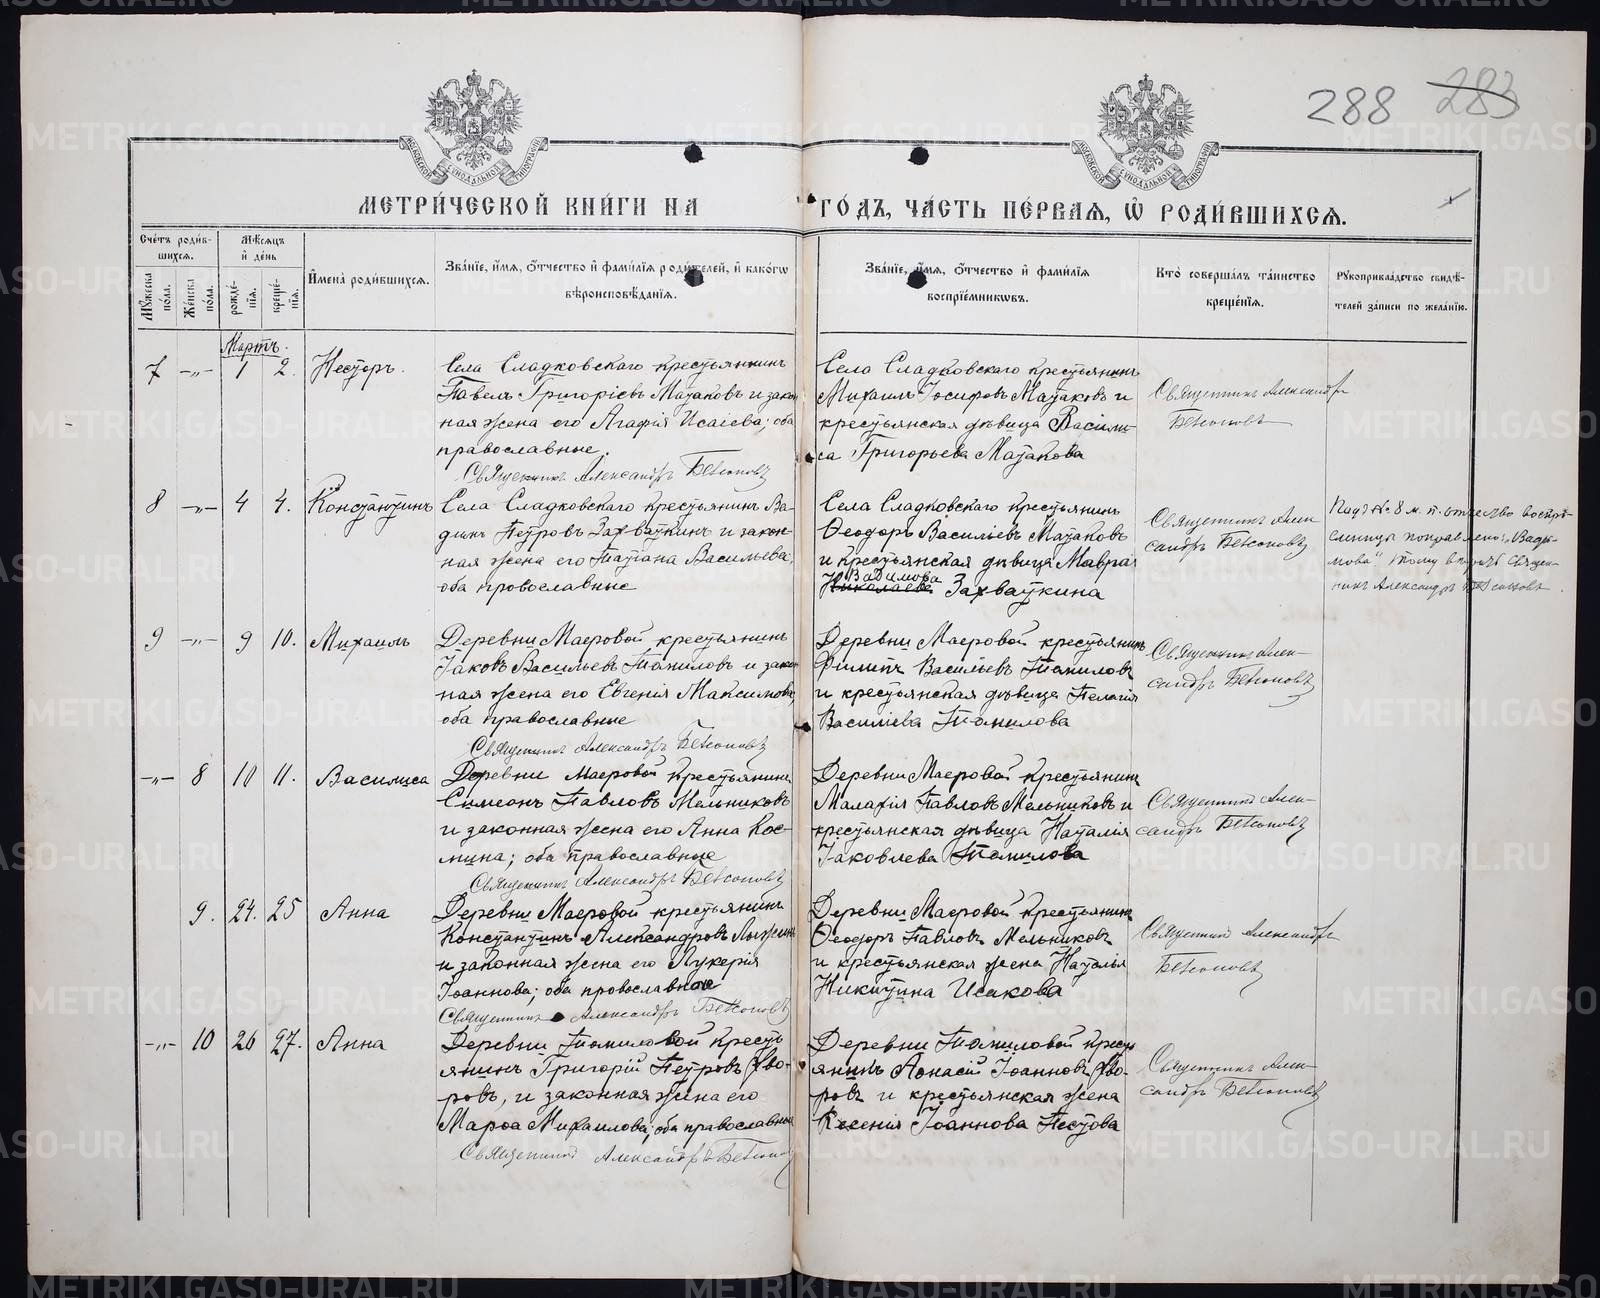 288 283
МЕТРИ́ЧЕСКОЙ КНИ́ГИ НА ГО́ДЪ, ЧА́СТЬ ПЕ́РВАЯ, Ѿ РОДИ́ВШИХСЯ.
Сче́тъ роди́в-
шихся.
Му́жеска
по́ла.
Же́нска
по́ла.
Мѣ́сяцъ
и҆ де́нь
рожде́-
нїѧ.
креще́-
нїѧ.
И҆мена̀ роди́вшихся.
Зва́нїе, и҆́мя, о҆́тчество и҆ фами́лїя роди́телей, и҆ како́гѡ
вѣроисповѣ́данїя.
Зва́нїе, и҆́мя, о҆́тчество и҆ фами́лїя
воспрїе́мниковъ.
Кто̀ соверша́лъ та́инство
креще́нїя.
Рꙋкоприкла́дство свидѣ́-
телей за́писи по жела́нїю.
Мартъ.
7 -„- 1 2. Несторъ.
Села Сладковскаго крестьянинъ
Павелъ Григоріевъ Матаковъ и закон
ная жена его Агафія Исаіева; оба
православные.
Священникъ Александръ
Села Сладковскаго крестьянинъ
Михаилъ Іосифовъ Матаковъ и
крестьянская дѣвица Васили-
са Григорьева Матакова
Священникъ Александръ
8 -„- 4 4. Константинъ
Села Сладковскаго крестьянинъ Ва-
димъ Петровъ Захваткинъ и закон-
ная жена его Татіана Васильева;
оба провославные
Села Сладковскаго крестьянинъ
Ѳеодоръ Васильевъ Матаковъ
и крестьянская дѣвица Мавра
Вадимова
Николаева Захваткина
Священникъ Алек-
сандръ
Подъ № 8 м. п. отчество воспрі-
емницы поправлено: „Вади-
мова“. Священ-
никъ Александръ
9 -„- 9 10. Михаилъ
Деревни Маеровой крестьянинъ
Іаковъ Васильевъ Томиловъ и закон
ная жена его Евгенія Максимова;
оба православные
Священникъ Александръ
Деревни Маеровой крестьянинъ
Филиппъ Васильевъ Томиловъ
и крестьянская дѣвица Пелагія
Василіева Томилова
Священникъ Алек-
сандръ
-„- 8 10 11. Василиса
Деревни Маеровой крестьянинъ
Симеонъ Павловъ Мельниковъ
и законная жена его Анна Кос-
мина; оба православные
Священникъ Александръ
Деревни Маеровой крестьянинъ
Малахія Павловъ Мельниковъ и
крестьянская дѣвица Наталія
Іаковлева Томилова
Священникъ Алек-
сандръ
9. 24. 25 Анна
Деревни Маеровой крестьянинъ
Константинъ Александровъ
и законная жена его Лукерія
Іоаннова; оба провославные
Священникъ Александръ
Деревни Маеровой крестьянинъ
Ѳеодоръ Павловъ Мельниковъ
и крестьянская жена Наталья
Никитина Исакова
Священникъ Александръ
-„- 10 26 27. Анна
Деревни Томиловой кресть
янинъ Григорій Петровъ Хво-
ровъ, и законная жена его
Марѳа Михаилова; оба православные
Священникъ Александръ
Деревни Томиловой кресть
янинъ Аѳнасій Іоанновъ Хво-
ровъ и крестьянская жена
Ксенія Іоаннова Пестова
Священникъ Алек-
сандръ